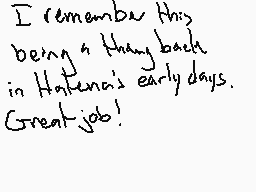 I remember this
being a thang back
in Hatena's early days.
Great job!